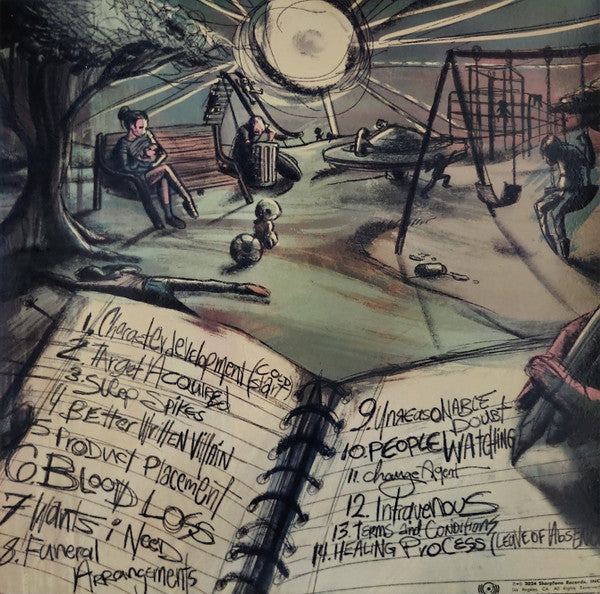 1. Character development (cold start)
2. Target Acquired
3. Sleep Spikes
4. BEtter Written Villain
5. Product Placement
6 BLOOD LOSS
7 Wants i Need
8. Funeral
Arrangements
9. UNREASONABLE
DOUBT
10. PEOPLE WATCHING
11. change Agent
12. Intravenous
13. Terms and Conditions
14. HEALING PROCESS (LEAVE OF ABSEN
℗© 2024 SharpTone Records, INC
Los Angeles, CA. All Rights Reserved